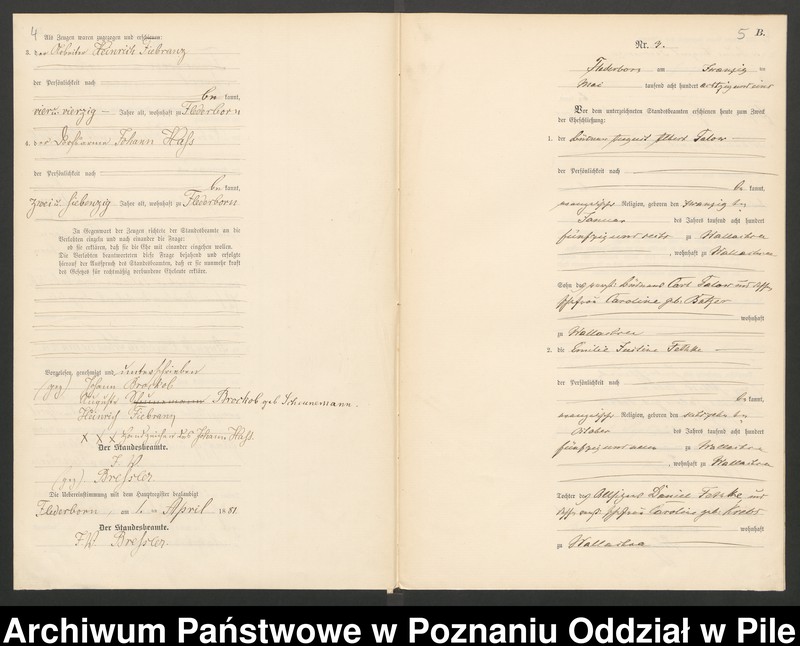 4
Als Zeugen waren zugezogen und erschienen:
3. der Arbeiter Heinrich Fiebranz
der Persönlichkeit nach
be kannt,
vieru. vierzig — Jahre alt, wohnhaft zu Flederborn
4. der Johann Hass
der Persönlichkeit nach
be kannt,
zwei u. siebenzig Jahre alt, wohnhaft zu Flederborn
In Gegenwart der Zeugen richtete der Standesbeamte an die
Verlobten einzeln und nach einander die Frage:
ob sie erklären, daß sie die Ehe mit einander eingehen wollen.
Die Verlobten beantworteten diese Frage bejahend und erfolgte
hierauf der Ausspruch des Standesbeamten, daß er sie nunmehr kraft
des Gesetzes für rechtmäßig verbundene Eheleute erkläre.
Vorgelesen, genehmigt und unterschrieben
(gez) Johann Brockob
Auguste Brockob geb Schünemann.
Heinrich Fiebranz
x x x Handzeichen des Johann Hass.
Der Standesbeamte.
J. V.
(gez) Bressler
Die Uebereinstimmung mit dem Hauptregister beglaubigt
Flederborn, am 1. ten April 1881
Der Standesbeamte.
J. V. Bressler.
5 B.
Nr. 3.
Flederborn am zwanzig ten
Mai tausend acht hundert achtzig und eins
Vor dem unterzeichneten Standesbeamten erschienen heute zum Zweck
der Eheschließung:
1. der Büdner August Albert —
der Persönlichkeit nach
be kannt,
evangelischer Religion, geboren den zwanzig ten
Januar des Jahres tausend acht hundert
fünfzig und sechs zu Wallachsee
, wohnhaft zu Wallachsee
Sohn des Büdners Carl und dessen
Ehefrau Caroline geb.
wohnhaft
zu Wallachsee
2. die Emilie Justine —
der Persönlichkeit nach
be kannt,
evangelischer Religion, geboren den ten
October des Jahres tausend acht hundert
fünfzig und zu Wallachsee
, wohnhaft zu Wallachsee
Tochter des Altsitzers Daniel und
dessen Ehefrau Caroline geb. Krebs
wohnhaft
zu Wallachsee
Archiwum Państwowe w Poznaniu Oddział w Pile